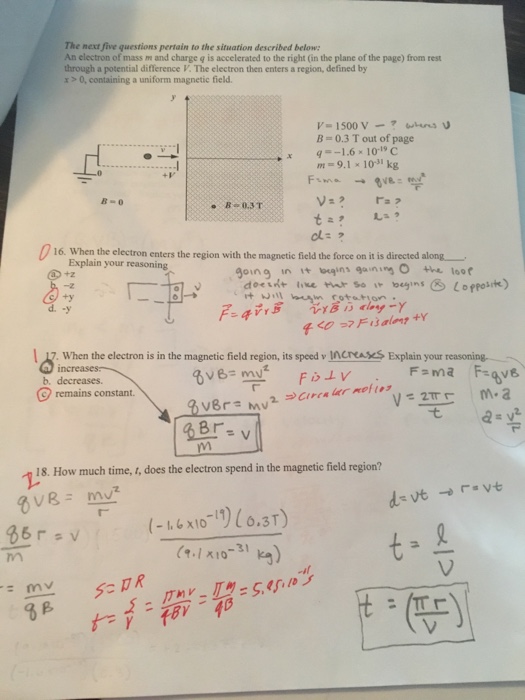 The next five questions pertain to the situation described below:
An electron of mass m and charge q is accelerated to the right (in the plane of the page) from rest
through a potential difference V. The electron then enters a region, defined by
x > 0, containing a uniform magnetic field.
y
x
v
0
+V
B = 0
B = 0.3 T
V = 1500 V - ?
B = 0.3 T out of page
q = -1.6 × 10⁻¹⁹ C
m = 9.1 × 10⁻³¹ kg
F=ma → qVB = mv²/r
V = ? r = ?
t = ? l = ?
d = ?
0 16. When the electron enters the region with the magnetic field the force on it is directed along
Explain your reasoning
a. +z
b. -z
c. +y
d. -y
going in it begins gaining the loop
doesn't like that so it begins (opposite)
it will begin rotation.
F = q v x B
v x B is along -y
q<0 => F is along +y
1 17. When the electron is in the magnetic field region, its speed v increases Explain your reasoning.
a. increases.
b. decreases.
c. remains constant.
qVB = mv²/r
qVBr = mv²
qBr/m = v
F is ⊥ V
=> Circular motion
F = ma
V = 2πr/t
F = qVB
m·a
a = v²/r
2 18. How much time, t, does the electron spend in the magnetic field region?
qVB = mv²/r
qBr/m = v
= mv/qB
(-1.6 x10⁻¹⁹)(0.3T)
(9.1 x10⁻³¹ kg)
S = πR
t = S/V = πmV/qBV = πm/qB = 5.95·10⁻¹¹ s
d = vt → r = vt
t = l/v
t = (πr/v)